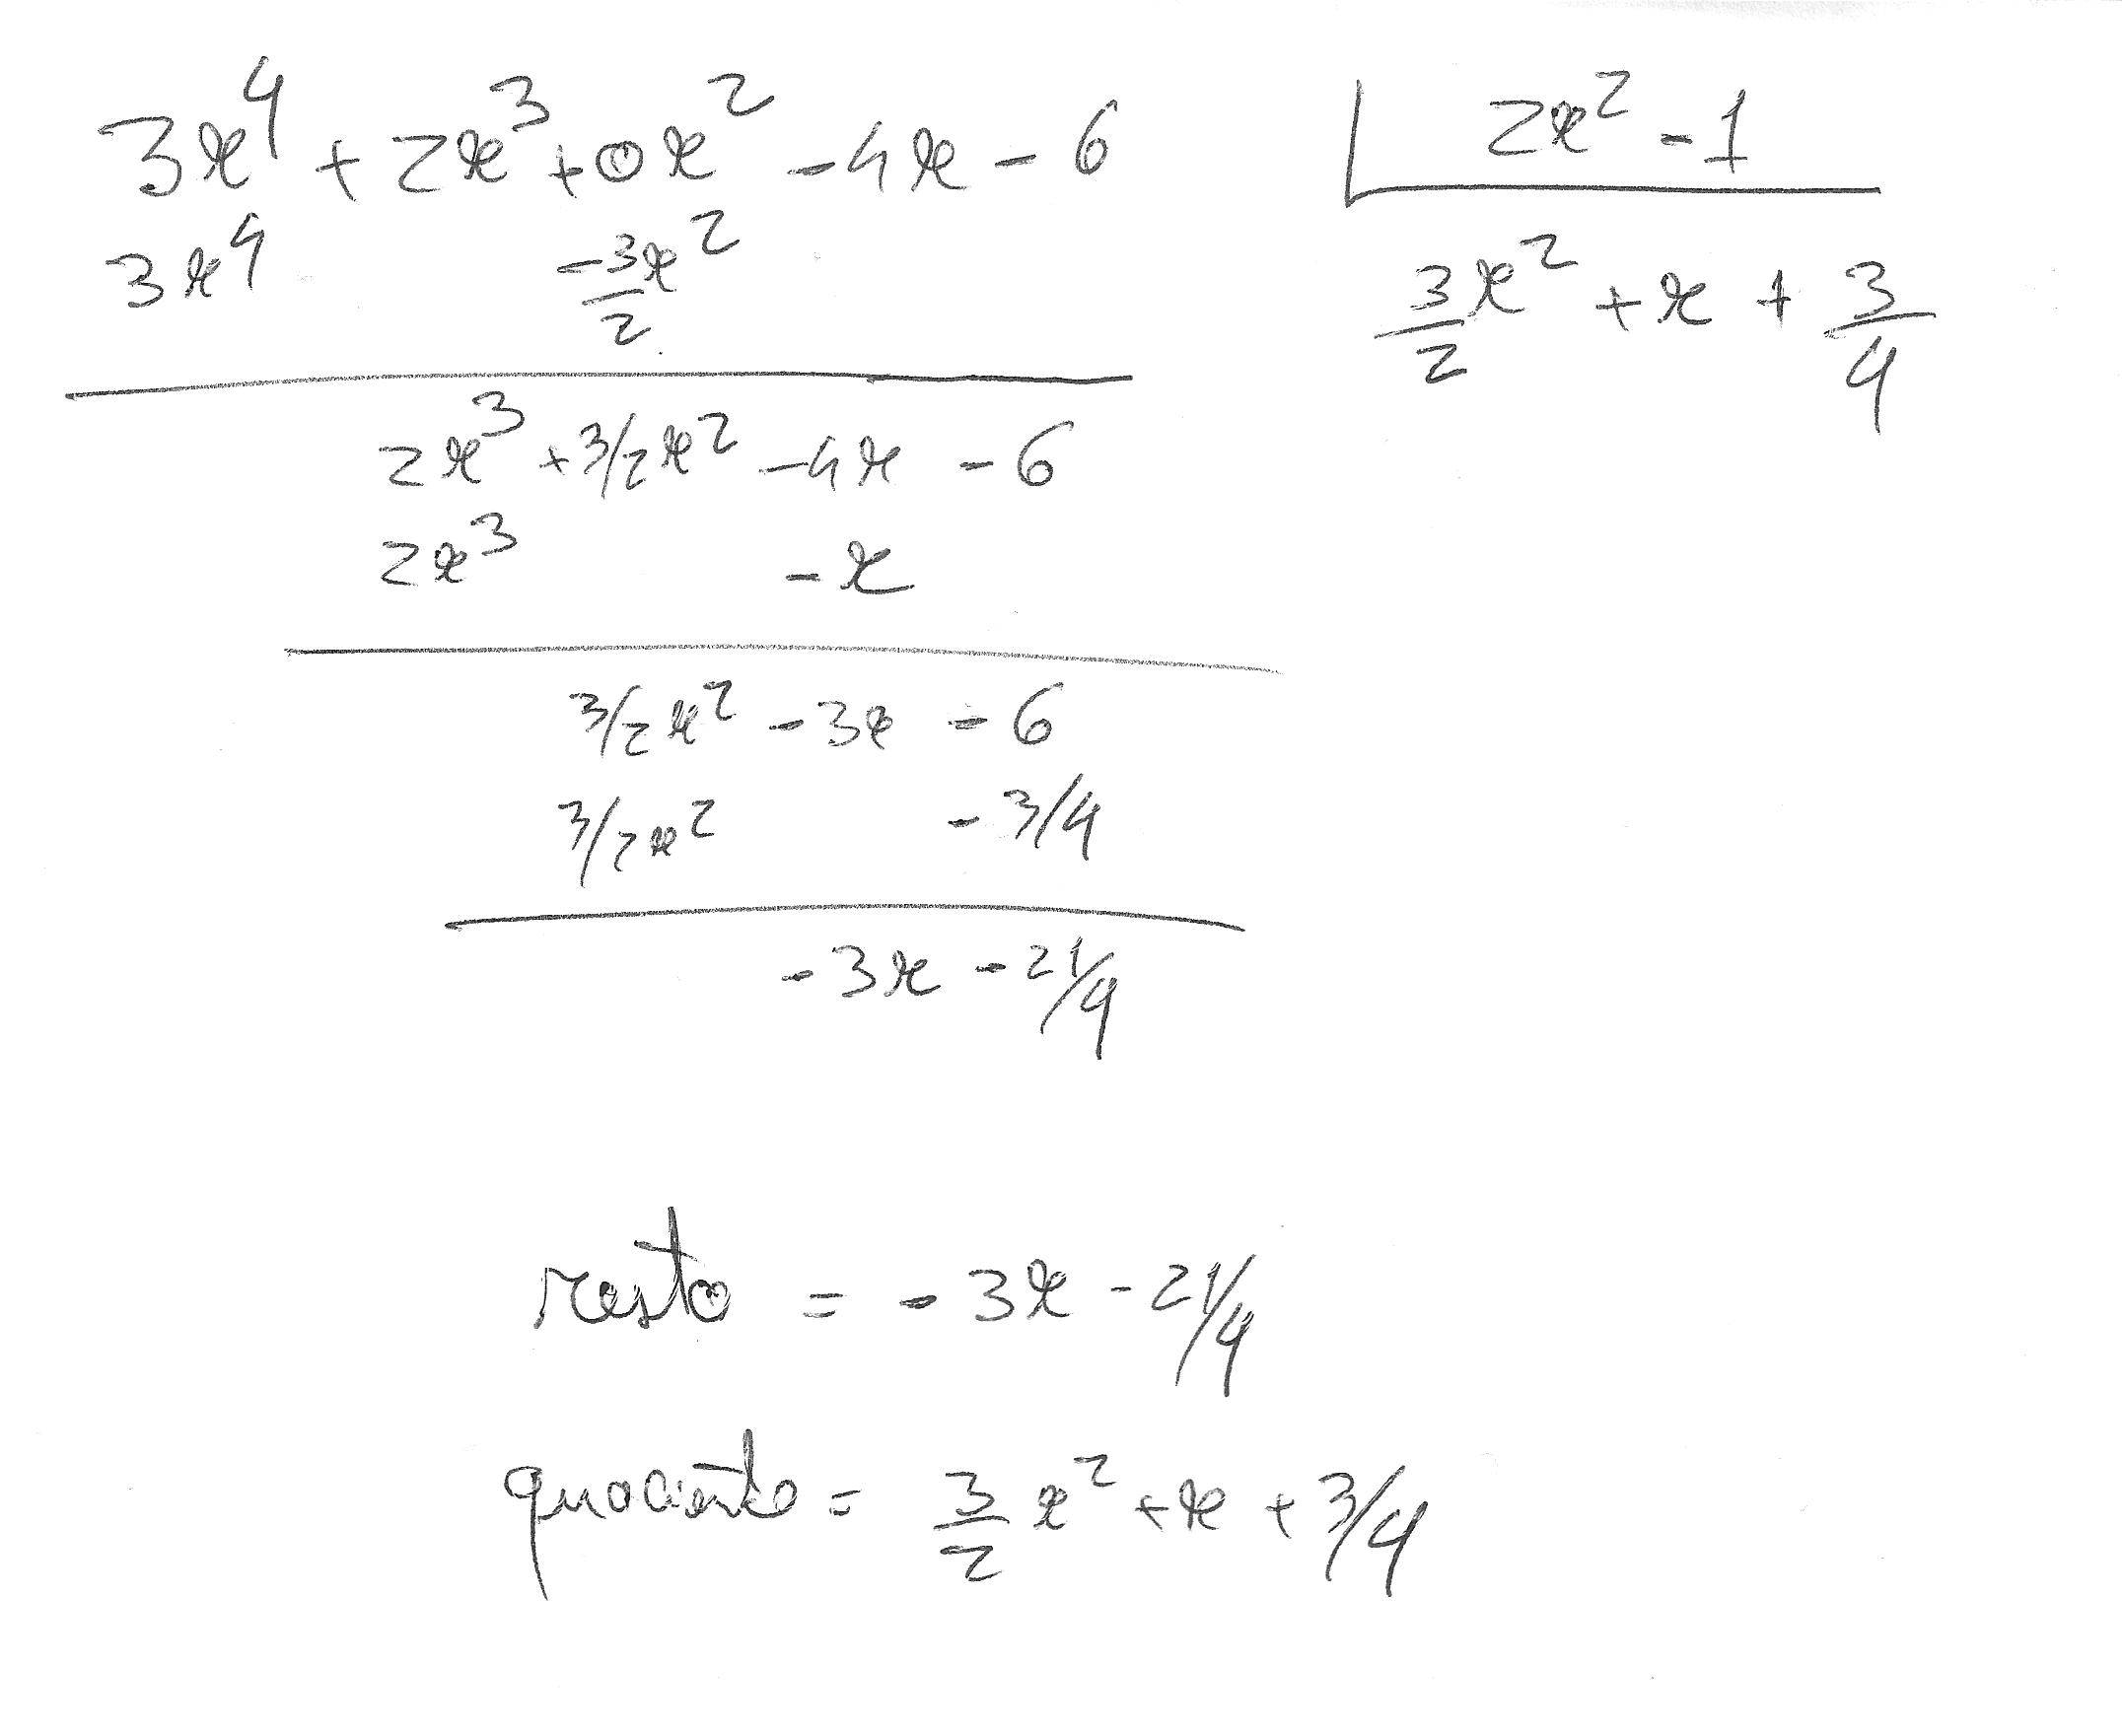 3x⁴ + 2x³ + 0x² - 4x - 6 | 2x² - 1
3x⁴ -3/2 x² 3/2 x² + x + 3/4
2x³ + 3/2x² - 4x - 6
2x³ - x
3/2x² - 3x - 6
3/2x² - 3/4
- 3x - 21/4
resto = - 3x - 21/4
quociente = 3/2 x² + x + 3/4